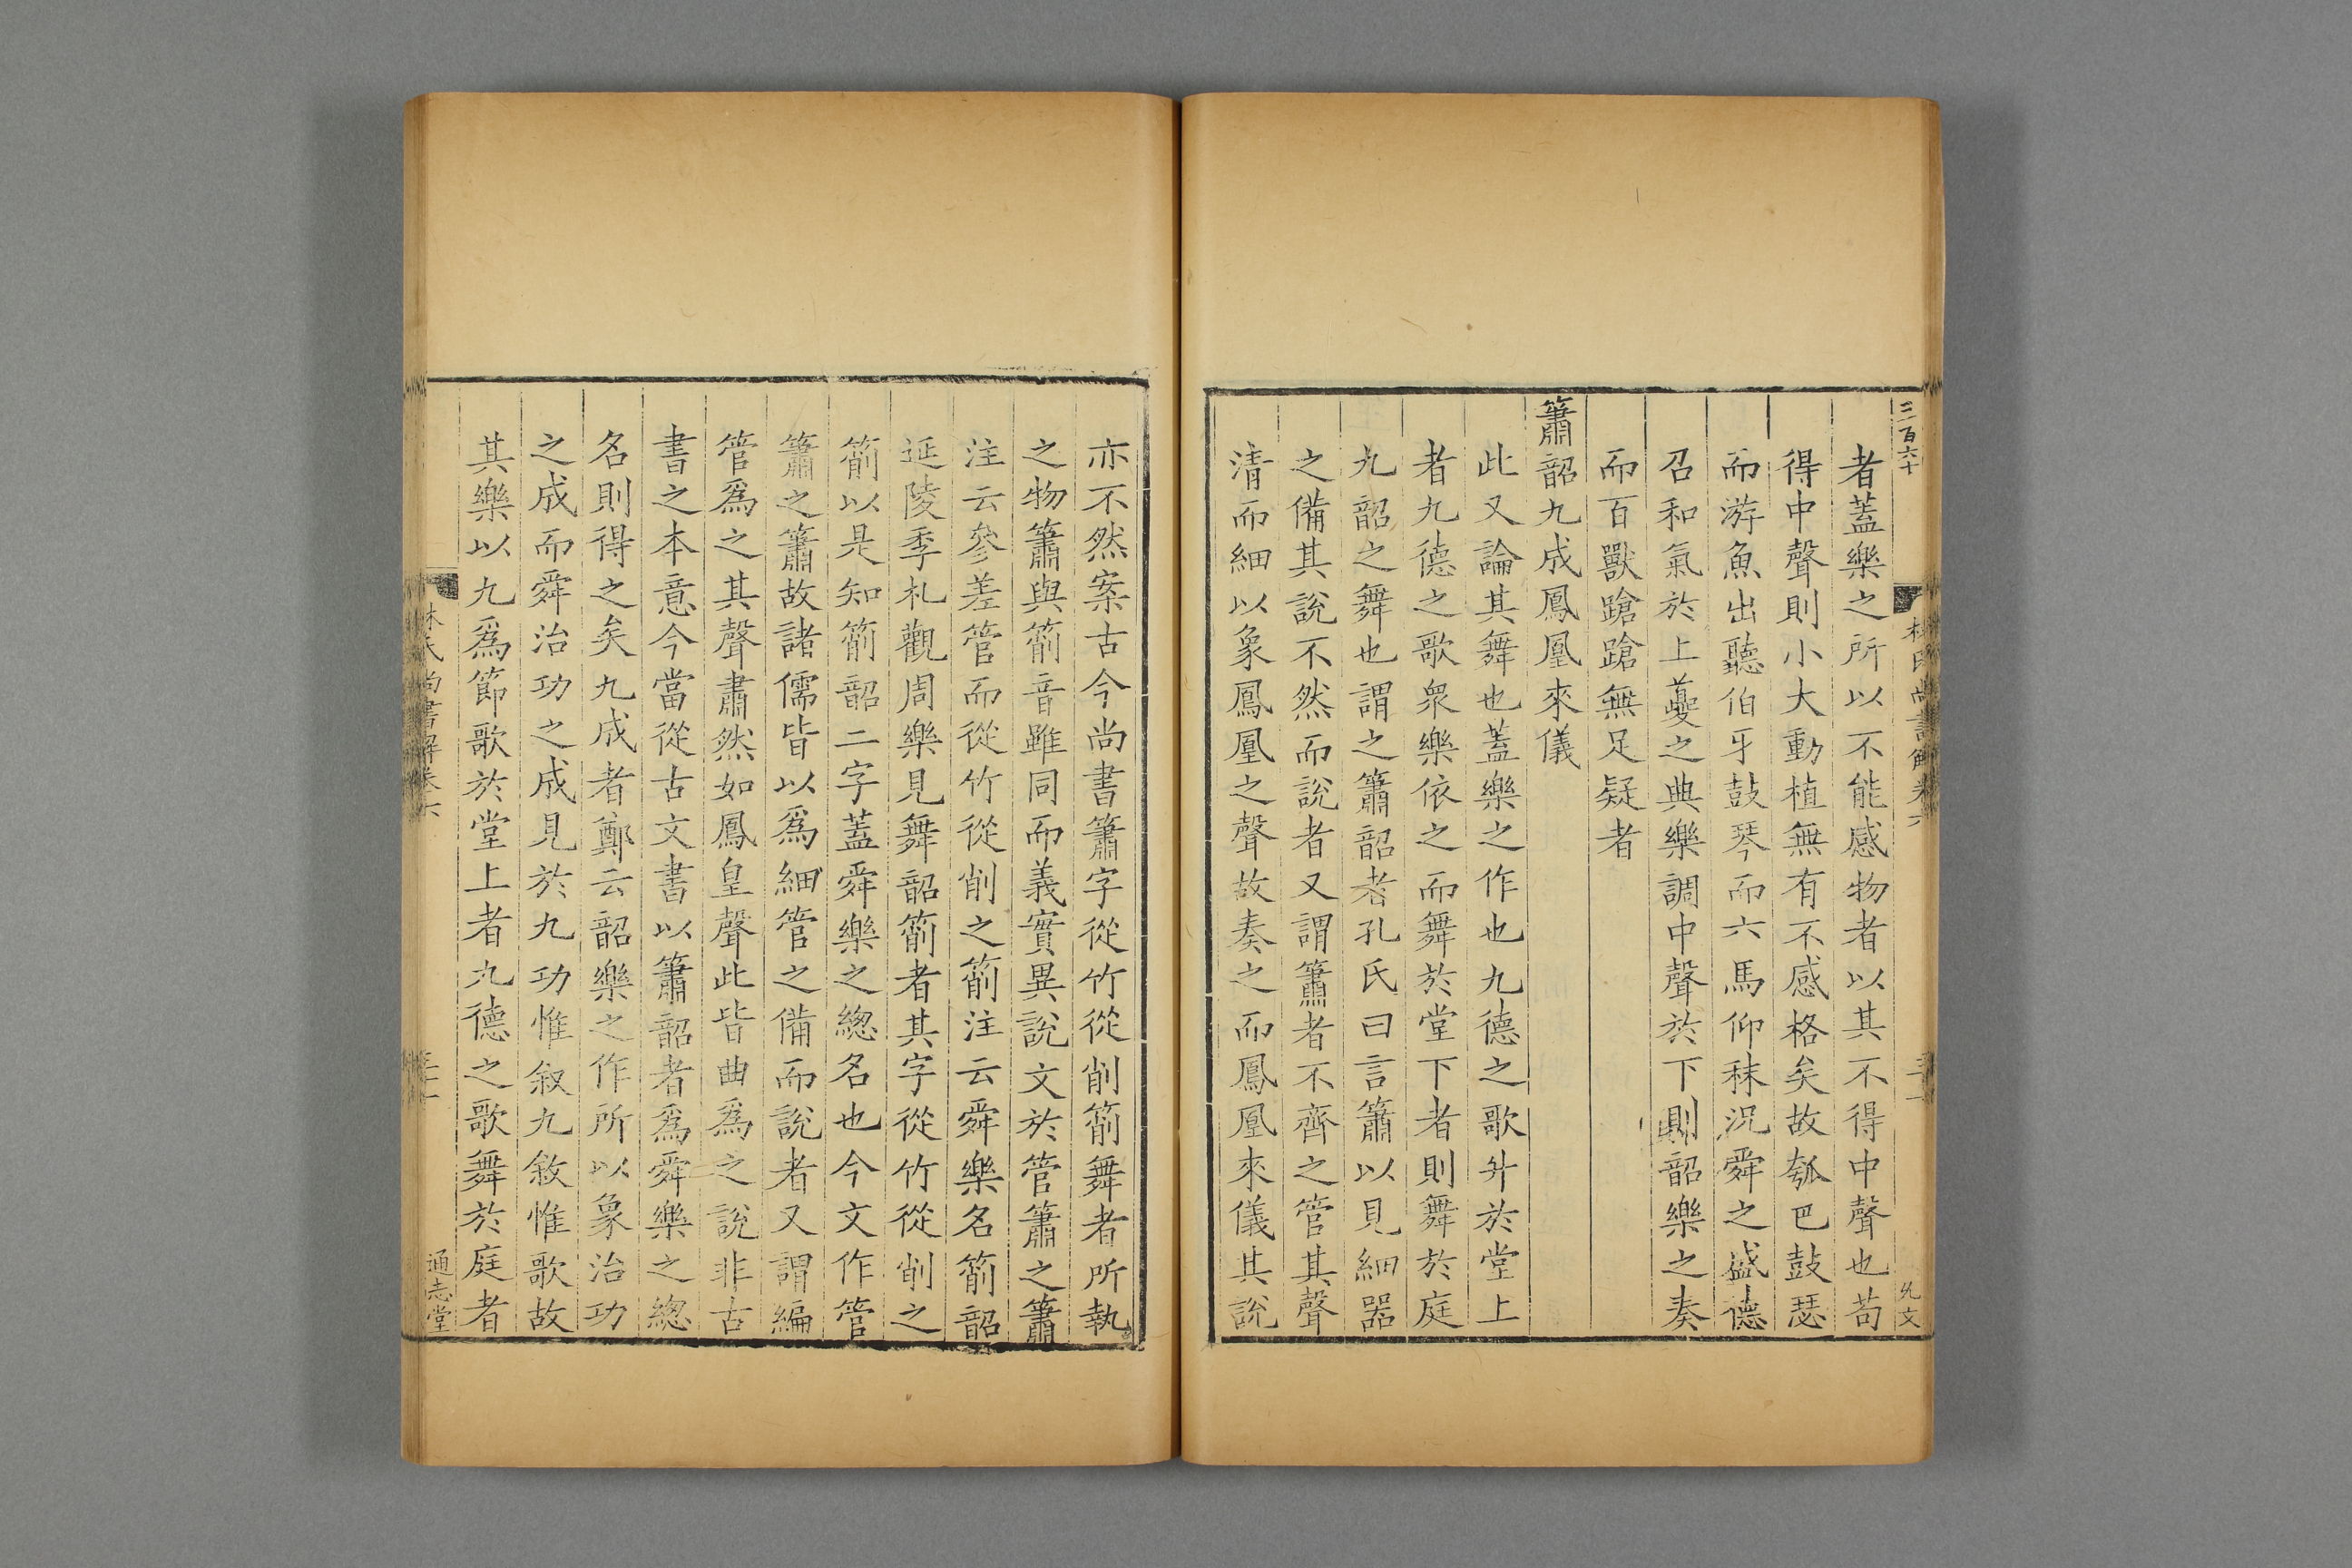 三百六十
者蓋樂之所以不能感物者以其不得中聲也苟
得中聲則小大動植無有不感格矣故瓠巴鼓瑟
而游魚出聽伯牙鼓琴而六馬仰秣況舜之盛德
召和氣於上夔之典樂調中聲於下則韶樂之奏
而百獸蹌蹌無足疑者
簫韶九成鳳凰來儀
此又論其舞也蓋樂之作也九德之歌升於堂上
者九德之歌衆樂依之而舞於堂下者則舞於庭
九韶之舞也謂之簫韶者孔氏曰言簫以見細器
之備其說不然而說者又謂簫者不齊之管其聲
清而細以象鳳凰之聲故奏之而鳳凰來儀其說
亦不然案古今尚書簫字從竹從削箾舞者所執
之物簫與箾音雖同而義實異說文於管簫之簫
注云參差管而從竹從削之箾注云舜樂名箾韶
延陵季札觀周樂見舞韶箾者其字從竹從削之
箾以是知箾韶二字蓋舜樂之總名也今文作管
簫之簫故諸儒皆以爲細管之備而說者又謂編
管爲之其聲肅然如鳳皇聲此皆曲爲之說非古
書之本意今當從古文書以簫韶者爲舜樂之總
名則得之矣九成者鄭云韶樂之作所以象治功
之成而舜治功之成見於九功惟叙九敘惟歌故
其樂以九爲節歌於堂上者九德之歌舞於庭者
林氏尚書解卷六
通志堂